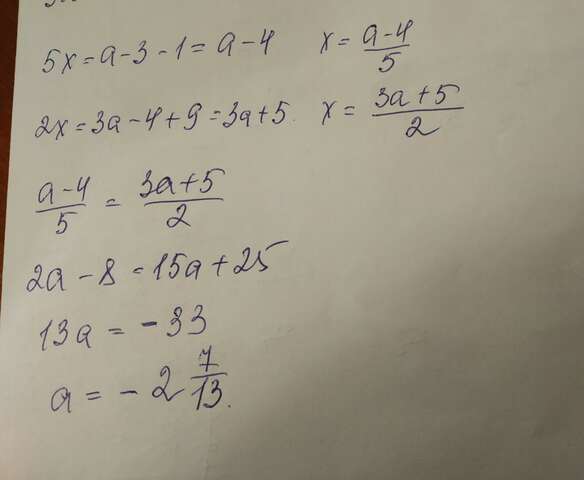 5x = a - 3 - 1 = a - 4 x = (a-4)/5
2x = 3a - 4 + 9 = 3a + 5. x = (3a+5)/2
(a-4)/5 = (3a+5)/2
2a - 8 = 15a + 25
13a = -33
a = -2 7/13.